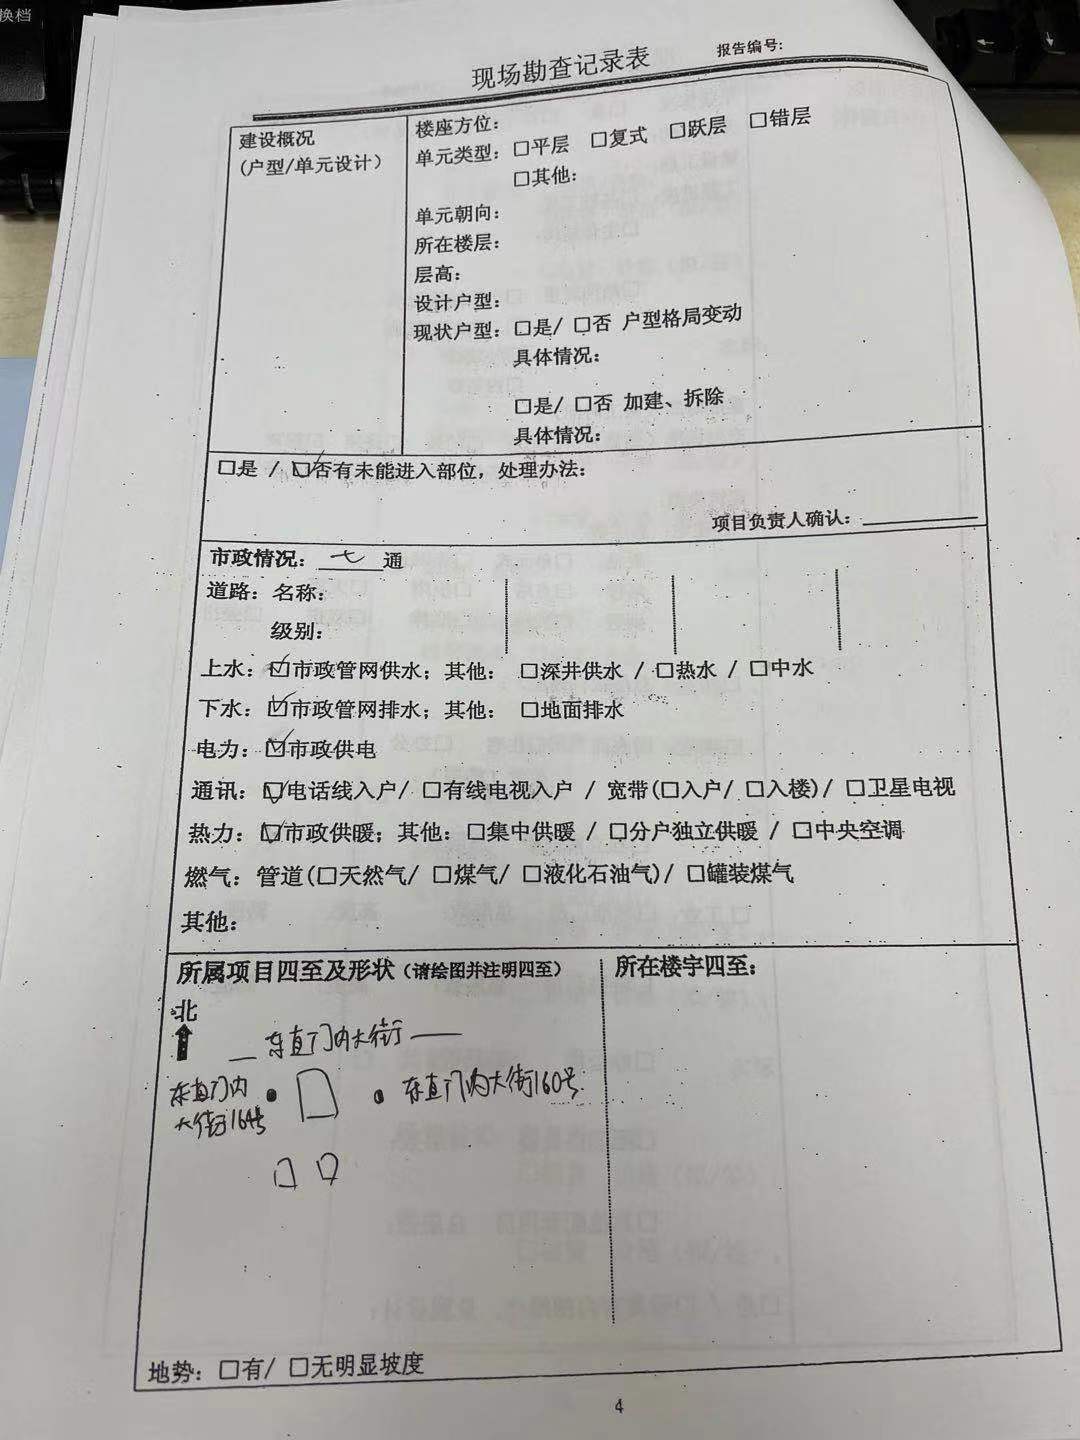 换档
现场勘查记录表
报告编号:
建设概况
(户型/单元设计)
楼座方位:
单元类型: □平层 □复式 □跃层 □错层
□其他:
单元朝向:
所在楼层:
层高:
设计户型:
现状户型: □是/ □否 户型格局变动
具体情况:
□是/ □否 加建、拆除
具体情况:
□是 / ☑否有未能进入部位, 处理办法:
项目负责人确认:
市政情况: 七 通
道路: 名称:
级别:
上水: ☑市政管网供水; 其他: □深井供水 / □热水 / □中水
下水: ☑市政管网排水; 其他: □地面排水
电力: ☑市政供电
通讯: ☑电话线入户/ □有线电视入户 / 宽带(□入户/ □入楼)/ □卫星电视
热力: ☑市政供暖; 其他: □集中供暖 / □分户独立供暖 / □中央空调
燃气: 管道(□天然气/ □煤气/ □液化石油气)/ □罐装煤气
其他:
所属项目四至及形状(请绘图并注明四至)
所在楼宇四至:
北
东直门内大街
东直门内
大街164号
东直门内大街160号
地势: □有/ □无明显坡度
4